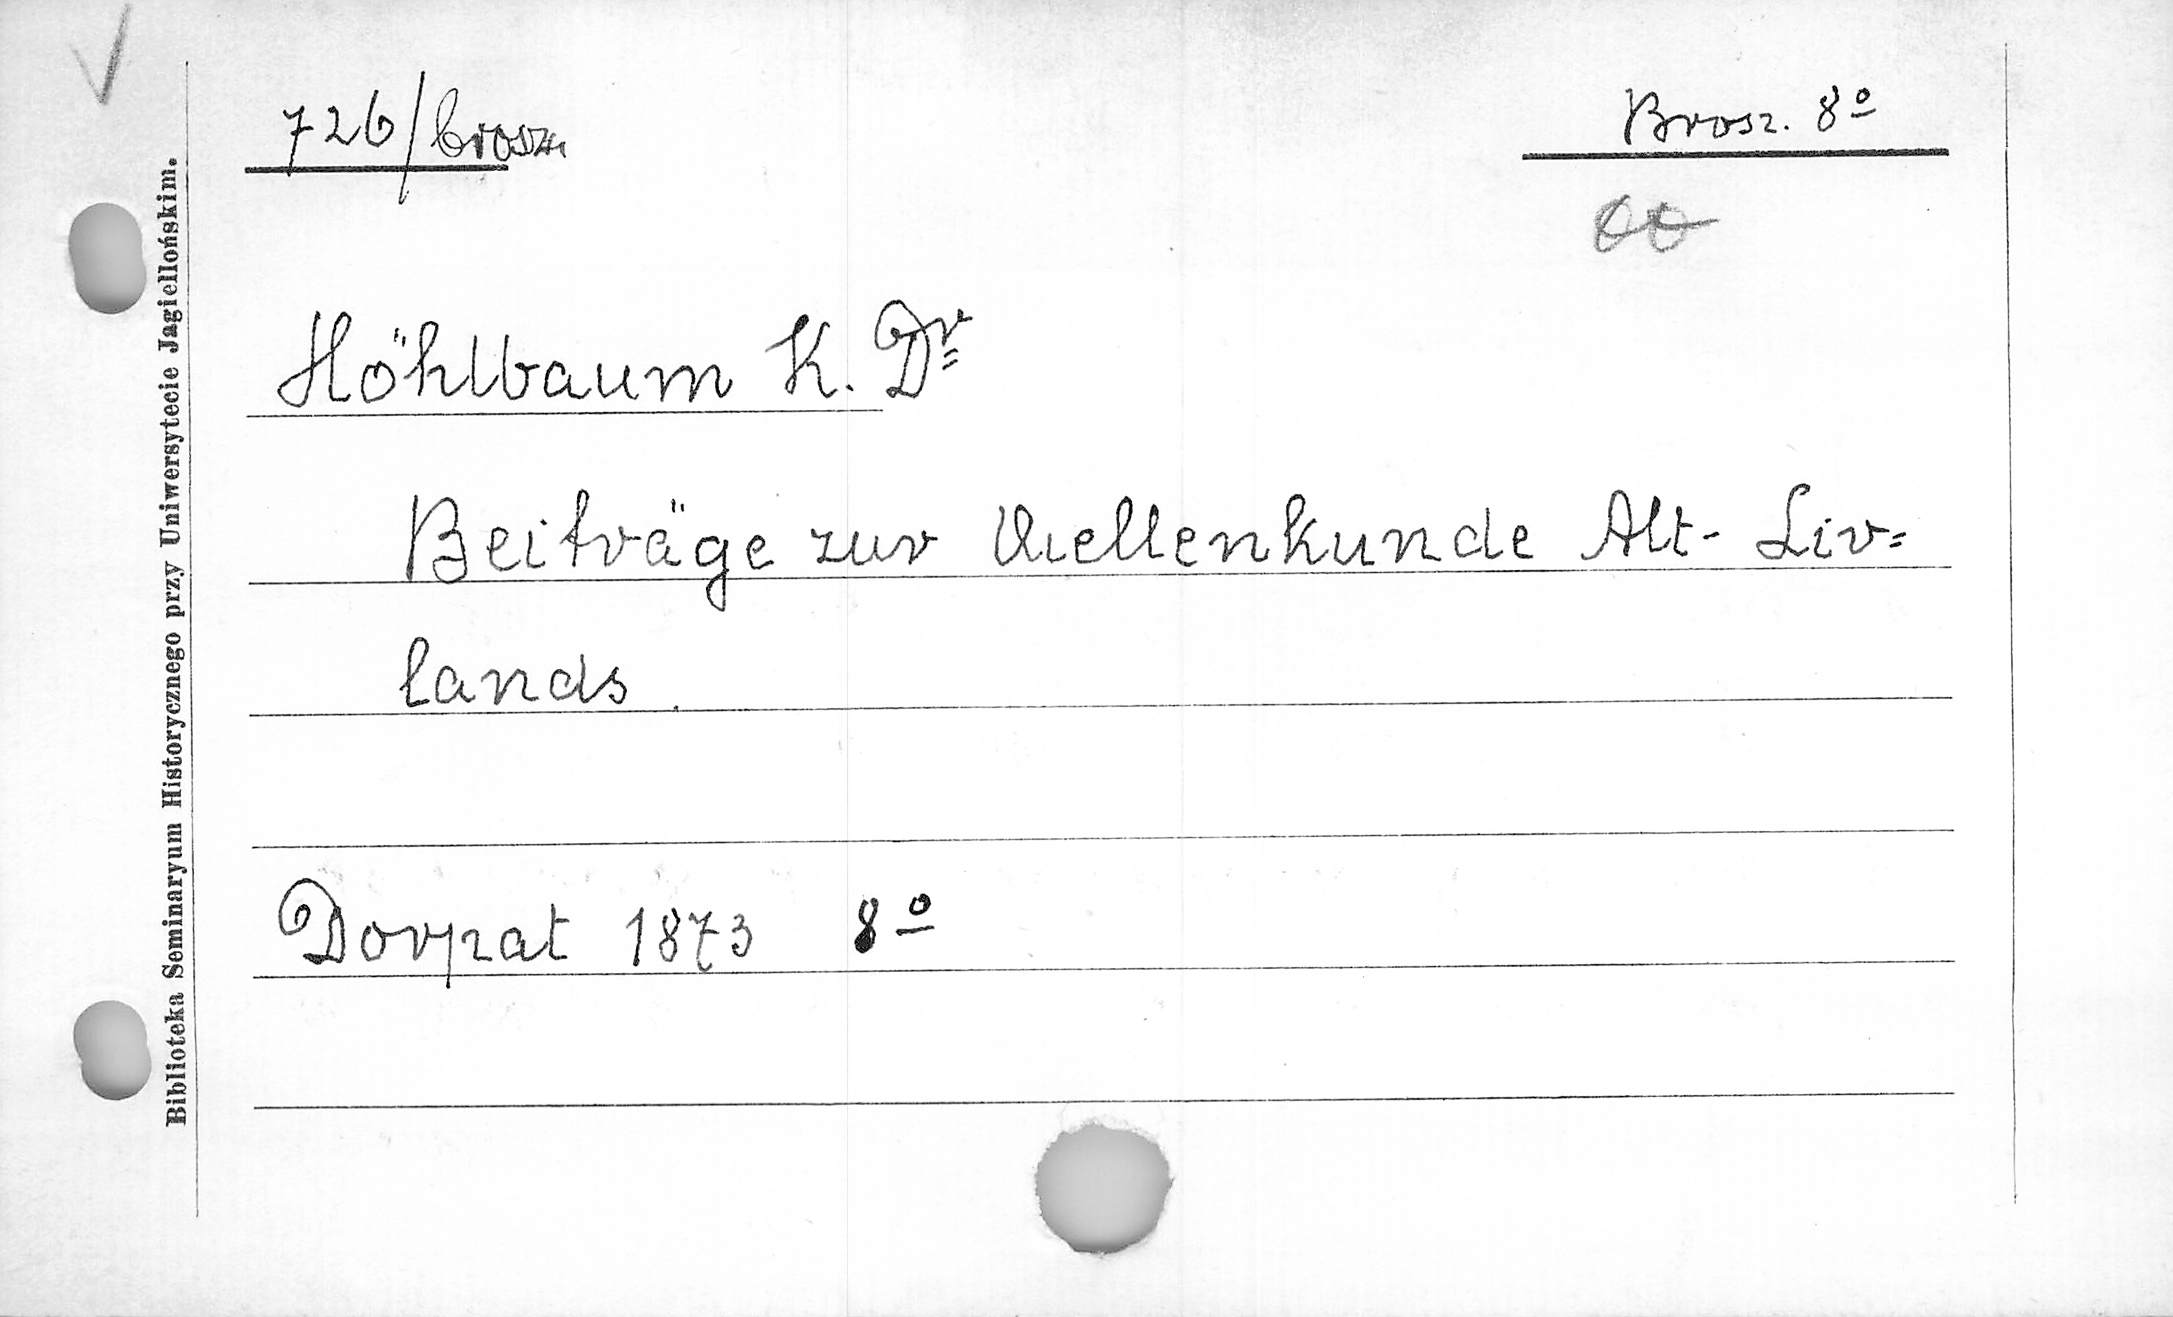 726/brosz.
Brosz. 8º
Höhlbaum K. Dr
Beiträge zur Quellenkunde Alt-Liv=
lands.
Dorpat 1873 8º
Biblioteka Seminaryum Historycznego przy Uniwersytecie Jagiellońskim.